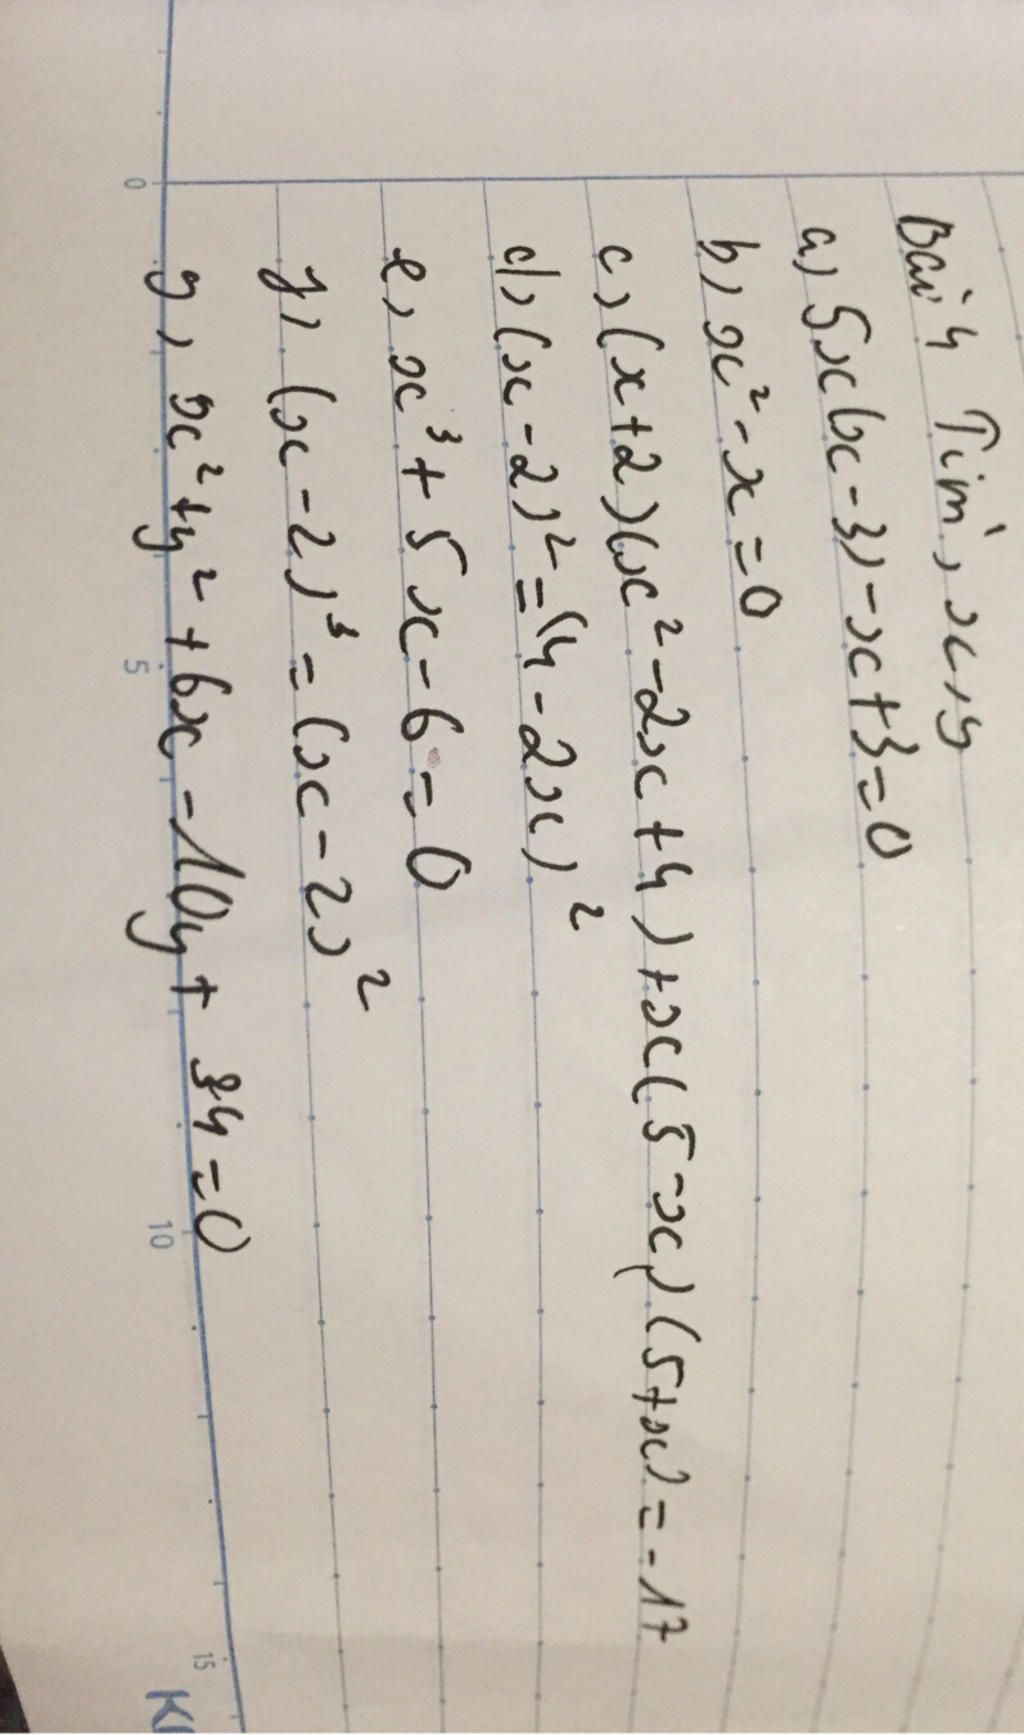 Bài 4 Tìm x, y
a, 5x(x-3)-x+3=0
b, x²-x=0
c, (x+2)(x²-2x+4)+x(5-x)(5+x)=-17
d, (x-2)²=(4-2x)²
e, x³+5x-6=0
f, (x-2)³=(x-2)²
g, x²+y²+6x-10y+34=0
0
5
10
15